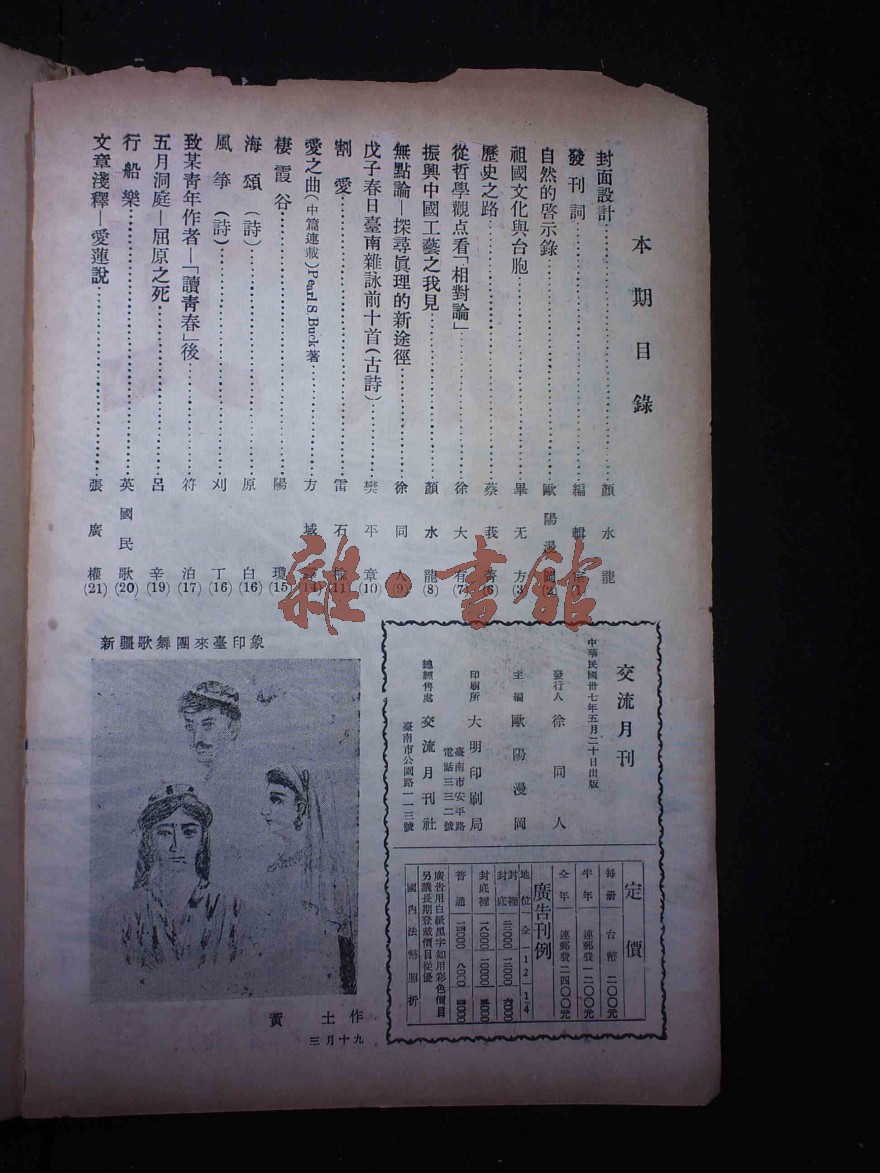 本期目錄
封面設計 顏水龍
發刊詞 編輯 (1)
自然的啓示錄 歐陽漫岡 (2)
祖國文化與台胞 畢无方 (3)
歷史之路 蔡莪 (6)
從哲學觀点看「相對論」 徐大有 (7)
振興中國工藝之我見 顏水龍 (8)
無點論—探尋眞理的新途徑 徐同人 (9)
戊子春日臺南雜詠前十首(古詩) 樊平章 (10)
割愛 雷石 (11)
愛之曲(中篇連載)Pearl S Buck著 方域 (14)
棲霞谷 陽瓊 (15)
海頌(詩) 原白 (16)
風箏(詩) 刈丁 (16)
致某青年作者—「讀青春」後 符泊 (17)
五月洞庭—屈原之死 呂辛 (19)
行船樂 英國民歌 (20)
文章淺釋—愛蓮說 張廣權 (21)
雜·書館
交流月刊
中華民國卅七年五月二十日出版
發行人 徐同人
主編 歐陽漫岡
印刷所 大明印刷局
臺南市安平路
電話三三二號
總經售處 交流月刊社
臺南市公園路一一三號
定價
每册 台幣 二〇〇元
半年 連郵費 一二〇〇元
全年 連郵費 二四〇〇元
廣告刊例
地位 全 1/2 1/4
封裡
封底
封底裡 10000
普通 8000
廣告用白紙黑字如用彩色價目
另議長期登載價目從優
國內法幣照折
新疆歌舞團來臺印象
黃土作
三月十九